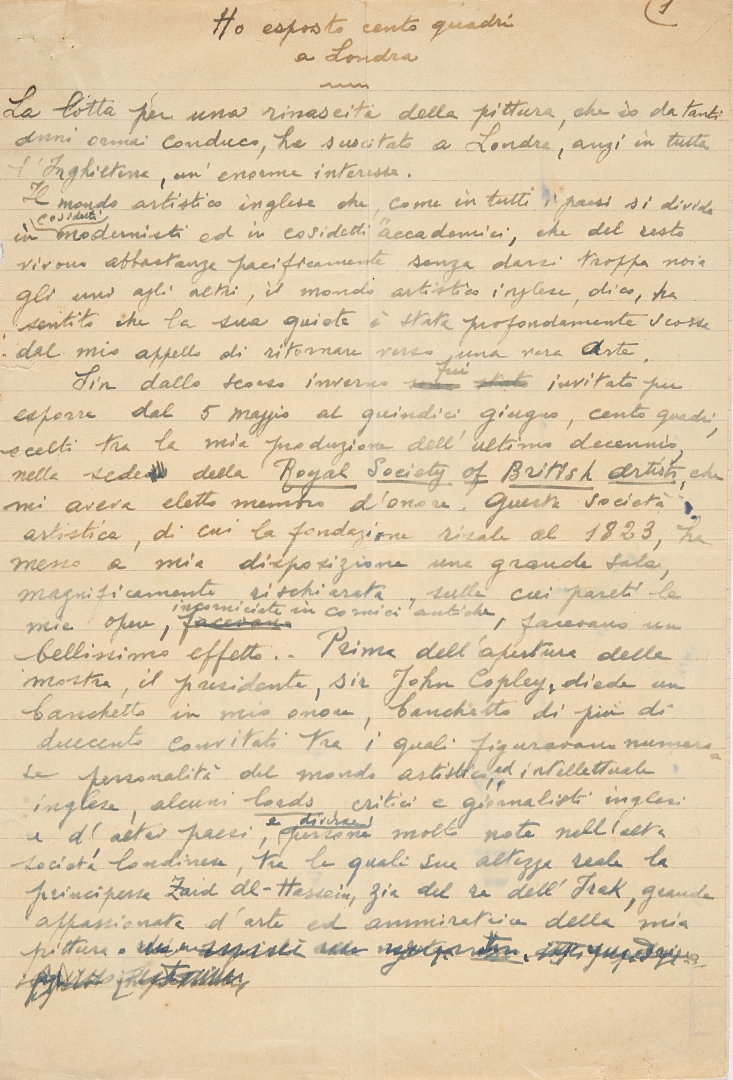 1
Ho esposto cento quadri
a Londra
La lotta per una rinascita della pittura, che io da tanti
anni ormai conduco, ha suscitato a Londra, anzi in tutta
l'Inghilterra, un'enorme interesse.
Il mondo artistico inglese che, come in tutti i paesi si divide
cosidetti
in modernisti ed in cosidetti "accademici, che del resto
vivono abbastanza pacificamente senza darsi troppa noia
gli uni agli altri, il mondo artistico inglese, dico, ha
sentito che la sua quiete è stata profondamente scossa
dal mio appello di ritornare verso una vera Arte.
fui
Sin dallo scorso inverno sono stato invitato per
esporre dal 5 maggio al quindici giugno, cento quadri,
scelti tra la mia produzione dell'ultimo decennio,
nella sede della Royal Society of British Artists, che
mi aveva eletto membro d'onore. Questa società
artistica, di cui la fondazione risale al 1823, ha
messo a mia disposizione una grande sala,
magnificamente rischiarata, sulle cui pareti le
incorniciate in cornici antiche
mie opere, facevano, facevano un
bellissimo effetto.. Prima dell'apertura della
mostra, il presidente, Sir John Copley, diede un
banchetto in mio onore, banchetto di più di
duecento convitati tra i quali figuravano numero=
se personalità del mondo artistico, ed intellettuale
inglese, alcuni lords, critici e giornalisti inglesi
e diverse
e d'altri paesi, persone molto note nell'alta
società londinese, tra le quali sua altezza reale la
principessa Zaid Al-Hassein, zia del re dell'Irak, grande
appassionata d'arte ed ammiratrice della mia
pittura.